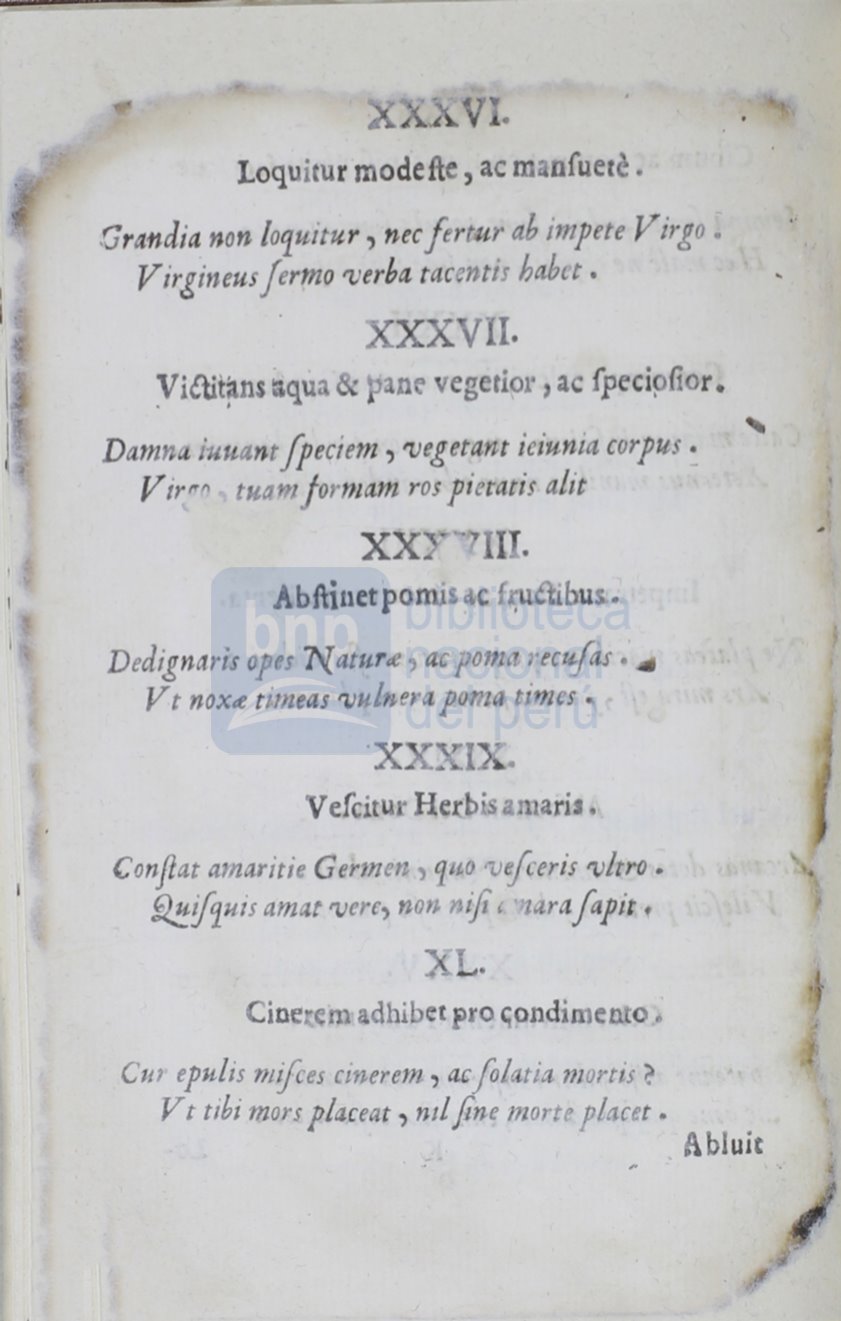 XXXVI.
Loquitur modeſte, ac manſuetè.
Grandia non loquitur, nec fertur ab impete Virgo.
Virgineus ſermo verba tacentis habet.
XXXVII.
Victitans aqua & pane vegetior, ac ſpecioſior.
Damna iuuant ſpeciem, vegetant ieiunia corpus.
Virgo, tuam formam ros pietatis alit
XXXVIII.
Abſtinet pomis ac fructibus.
Dedignaris opes Naturæ, ac poma recuſas.
Vt noxæ timeas vulnera poma times.
XXXIX.
Veſcitur Herbis amaris.
Conſtat amaritie Germen, quo veſceris vltro.
Quiſquis amat vere, non niſi amara ſapit.
XL.
Cinerem adhibet pro condimento.
Cur epulis miſces cinerem, ac ſolatia mortis?
Vt tibi mors placeat, nil ſine morte placet.
Abluit
bnp biblioteca
nacional
del perú